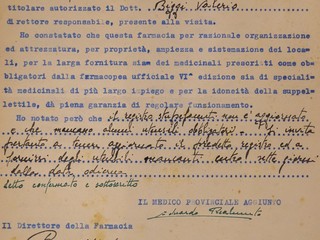 titolare autorizzato il Dott. Biggi Valerio
direttore responsabile, presente alla visita.
Ho constatato che questa farmacia per razionale organizzazione
ed attrezzatura, per proprietà, ampiezza e sistemazione dei loca-
li, per la larga fornitura sia dei medicinali prescritti come ob-
bligatori dalla farmacopea ufficiale VIª edizione sia di speciali-
tà medicinali di più largo impiego e per la idoneità della suppel-
lettile, dà piena garanzia di regolare funzionamento.
Ho notato però che il registro stupefacenti non è aggiornato
e che mancano alcuni utensili obbligatori. Si invita
pertanto a tenere aggiornato il predetto registro ed a
fornirsi degli utensili mancanti entro sette giorni
dalla data odierna
Letto confermato e sottoscritto
IL MEDICO PROVINCIALE AGGIUNTO
Il Direttore della Farmacia